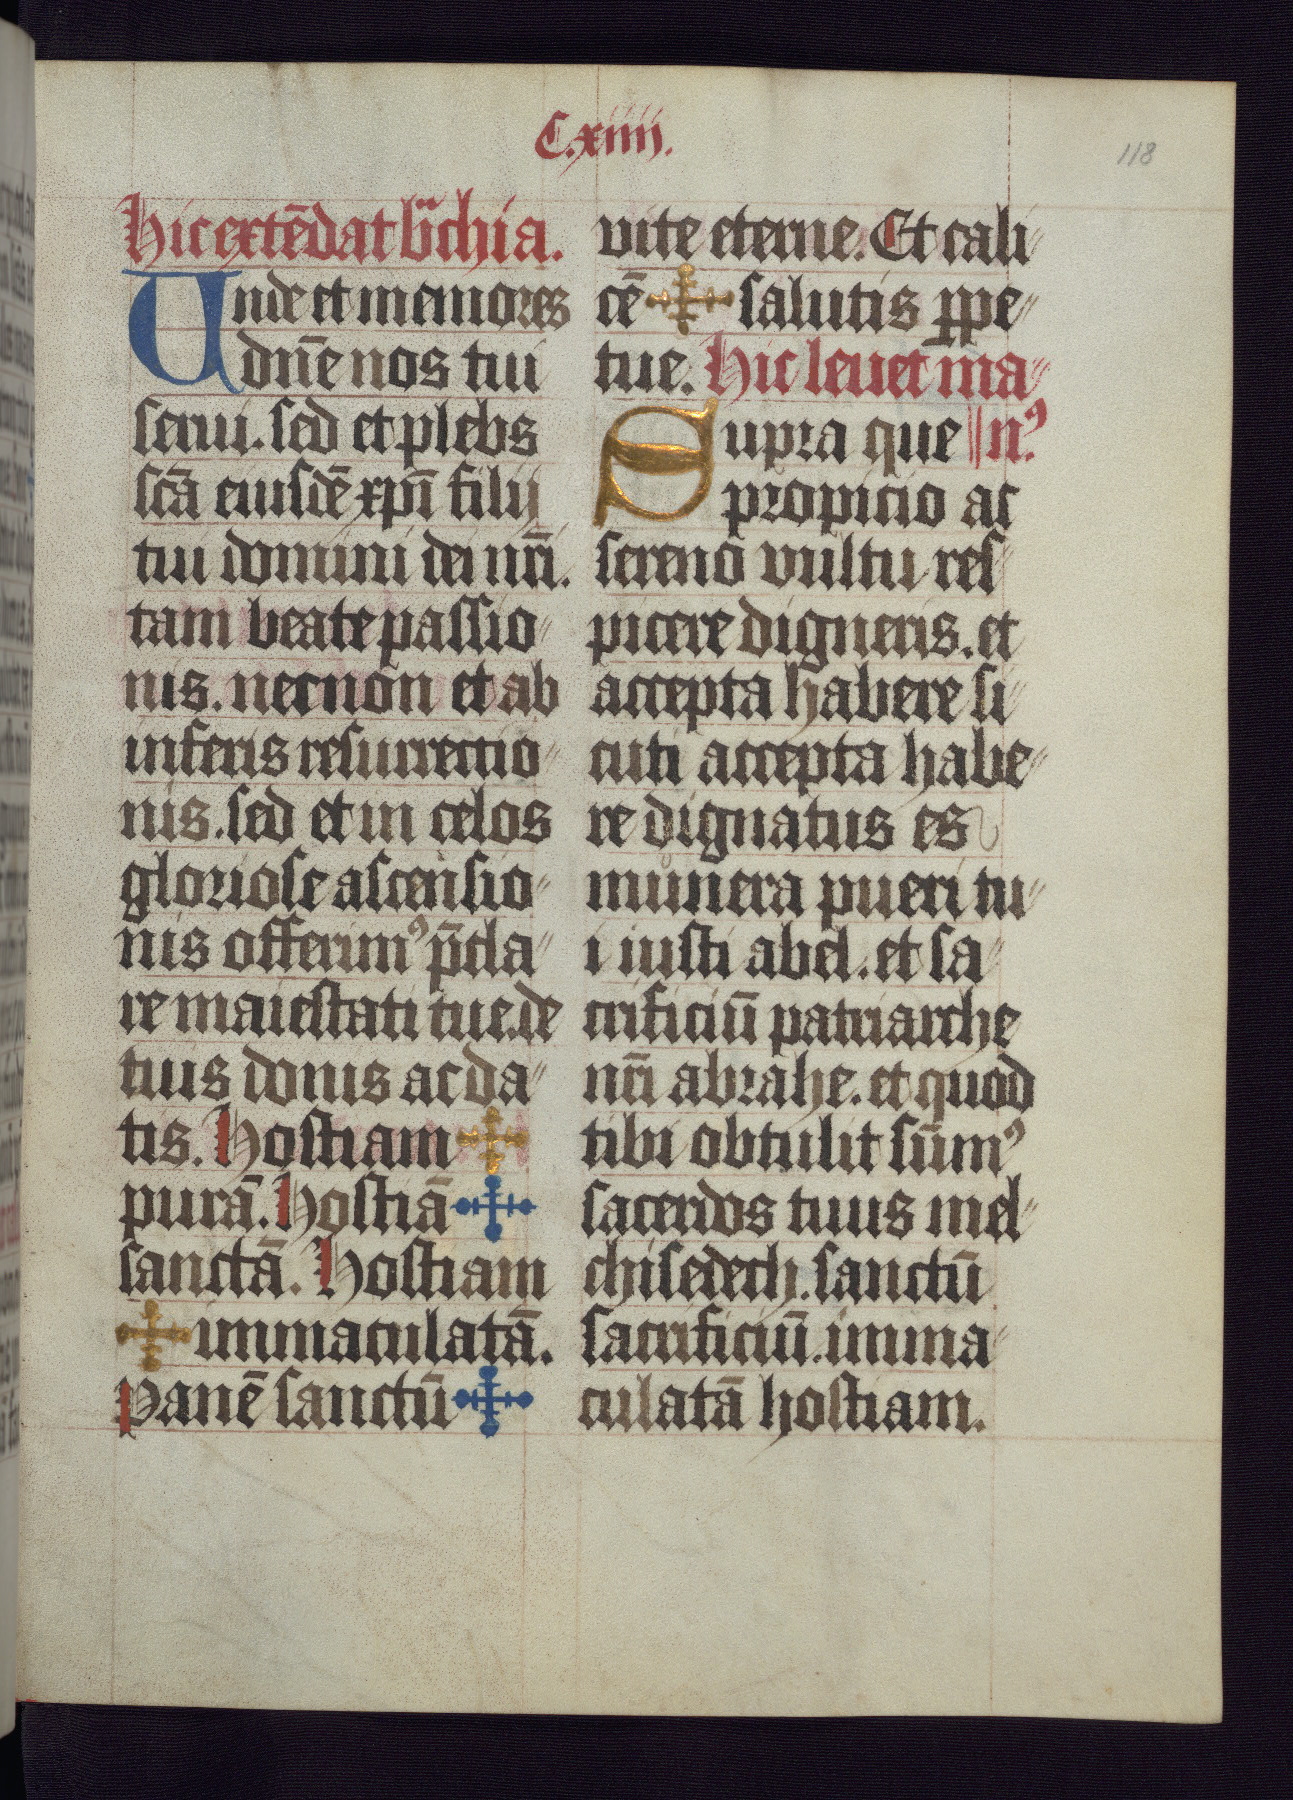 C.xiiii.
118
Hic extēdat br̄chia.
Unde et memores
dn̄e nos tui
serui. sed et plebs
scā eiusdē xp̄i filij
tui domini dei nr̄i.
tam beate passio〃
nis. necnon et ab
inferis resurrectio〃
nis. sed et in celos
gloriose ascensio〃
nis offerimꝰ p̄cla〃
re maiestati tue. de
tuis donis ac da〃
tis. Hostiam ✢
purā. Hostiā ✢
sanctā. Hostiam
✢ immaculatā.
Panē sanctū ✢
vite eterne. Et cali〃
cē ✢ salutis ꝑpe〃
tue. Hic leuet ma〃
Supra que nꝰ.
propicio ac
sereno vultu res〃
picere digneris. et
accepta habere si〃
cuti accepta habe〃
re dignatus es
munera pueri tu〃
i iusti abel. et sa〃
crificiū patriarche
nr̄i abrahe. et quod
tibi obtulit sūmꝰ
sacerdos tuus mel〃
chisedech. sanctū
sacrificiū. imma〃
culatā hostiam.